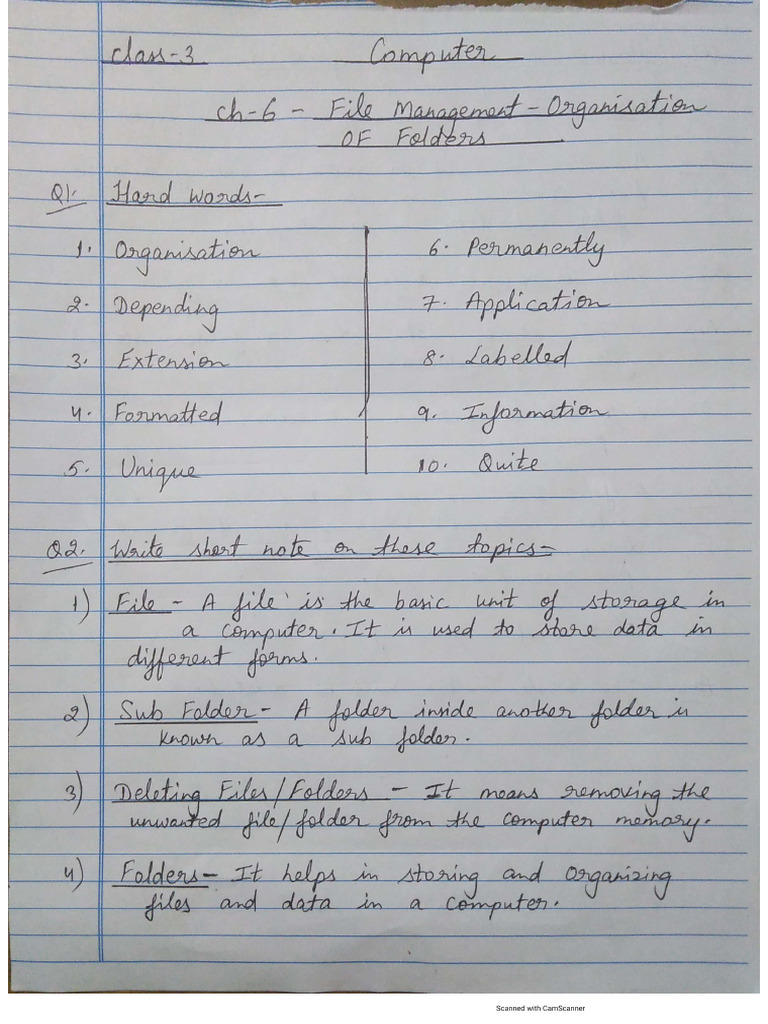 Class-3 Computer
Ch-6 - File Management - Organisation
OF Folders
Q1. Hard Words-
1. Organisation 6. Permanently
2. Depending 7. Application
3. Extension 8. Labelled
4. Formatted 9. Information
5. Unique 10. Quite
Q2. Write short note on these topics-
1) File - A file is the basic unit of storage in
a computer. It is used to store data in
different forms.
2) Sub Folder - A folder inside another folder is
known as a sub folder.
3) Deleting Files/Folders - It means removing the
unwanted file/folder from the computer memory.
4) Folders - It helps in storing and organizing
files and data in a computer.
Scanned with CamScanner